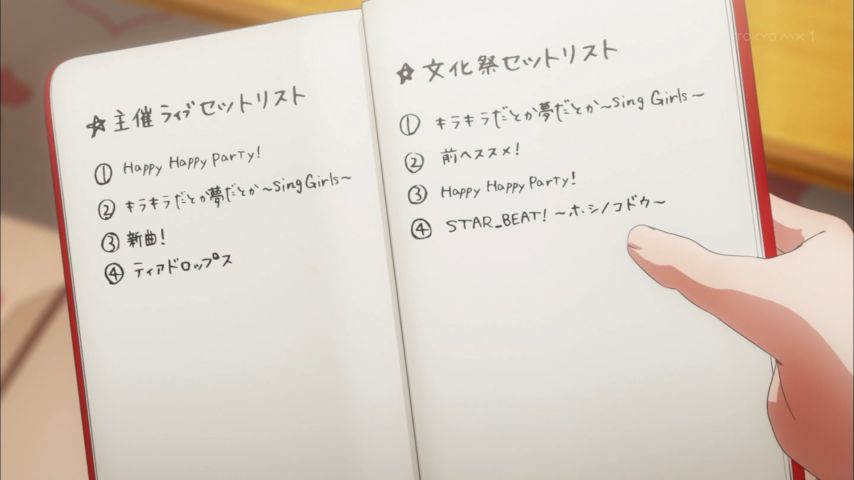 ☆主催ライブセットリスト
① Happy Happy Party!
② キラキラだとか夢だとか～Sing Girls～
③ 新曲!
④ ティアドロップス
☆文化祭セットリスト
① キラキラだとか夢だとか～Sing Girls～
② 前へススメ!
③ Happy Happy Party!
④ STAR_BEAT!～ホシノコドウ～
TOKYO MX 1